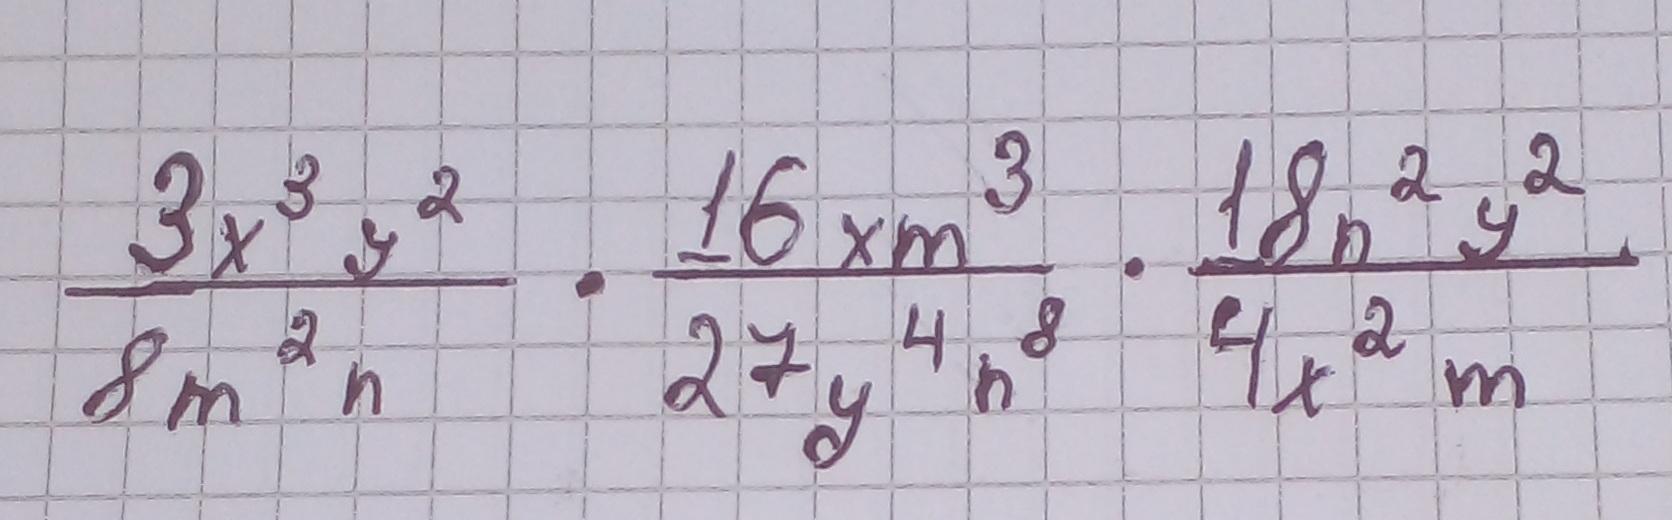 3x³y²/8m²n · 16xm³/27y⁴n⁸ · 18n²y²/4x²m